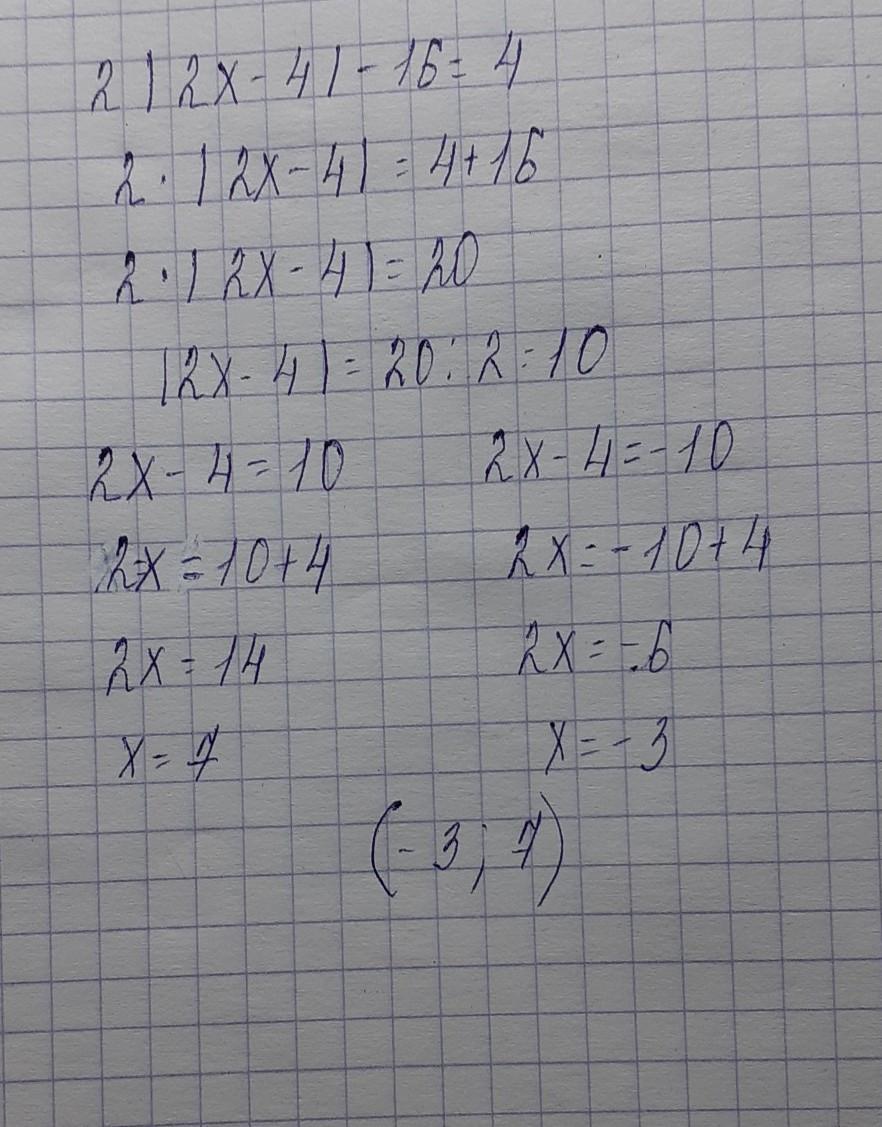 2|2x-4|-16=4
2·|2x-4|=4+16
2·|2x-4|=20
|2x-4|=20:2=10
2x-4=10 2x-4=-10
2x=10+4 2x=-10+4
2x=14 2x=-6
x=7 x=-3
(-3; 7)